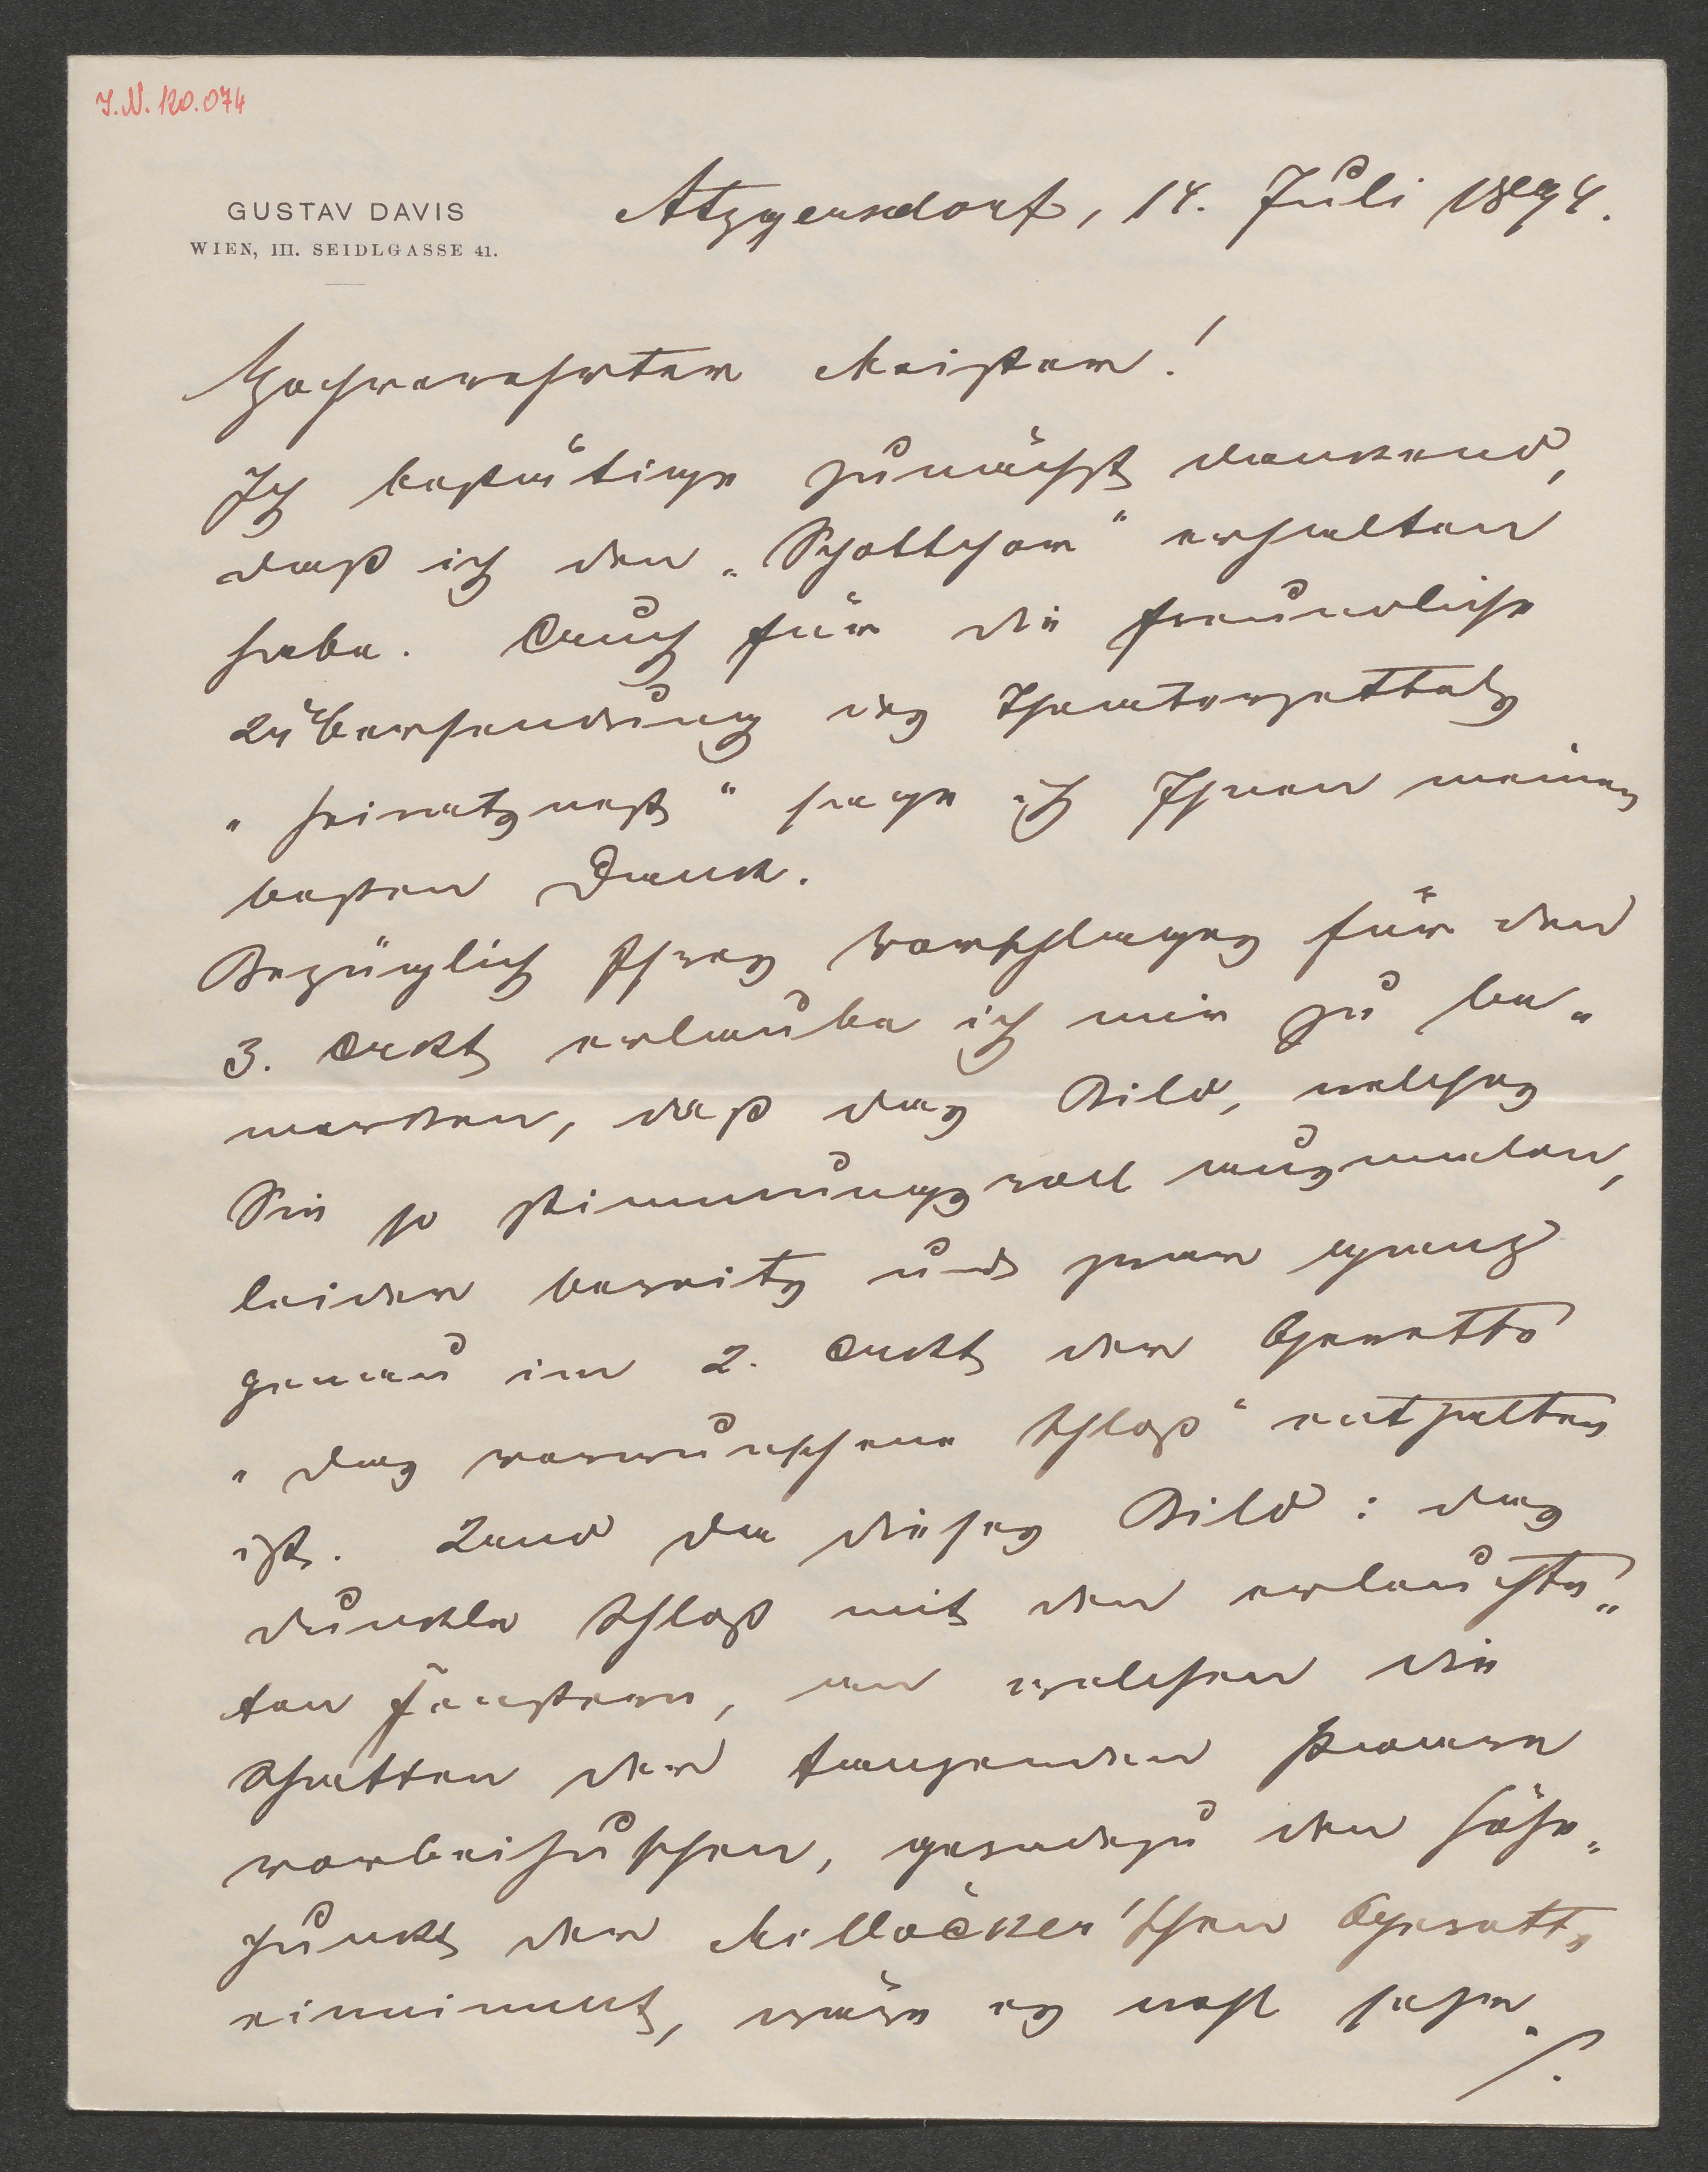 I.N. 120.074
GUSTAV DAVIS
WIEN, III. SEIDLGASSE 41.
Atzgersdorf, 14. Juli 1894.
Hochverehrter Meister!
Ich bestätige zunächst dankend,
daß ich den „Schottchor“ erhalten
habe. Auch für die freundliche
Übersendung des Theaterzettels
„Heiratsnest“ sage ich Ihnen meinen
besten Dank.
Bezüglich Ihres Vorschlages für den
3. Ackt erlaube ich mir zu be-
merken, daß das Bild, welches
Sie so stimmungsvoll ausmalen,
leider bereits und zwar ganz
genau im 2. Ackt der Operette
„das verwunschene Schloß“ enthalten
ist. Und da dieses Bild: das
dunkle Schloß mit den erleuchte-
ten Fenstern, an welchen die
Schatten der tanzenden Paare
vorbeihuschen, geradezu den Höhe-
punckt der Millöcker'schen Operette
einnimmt, wäre es wohl sehr
./.